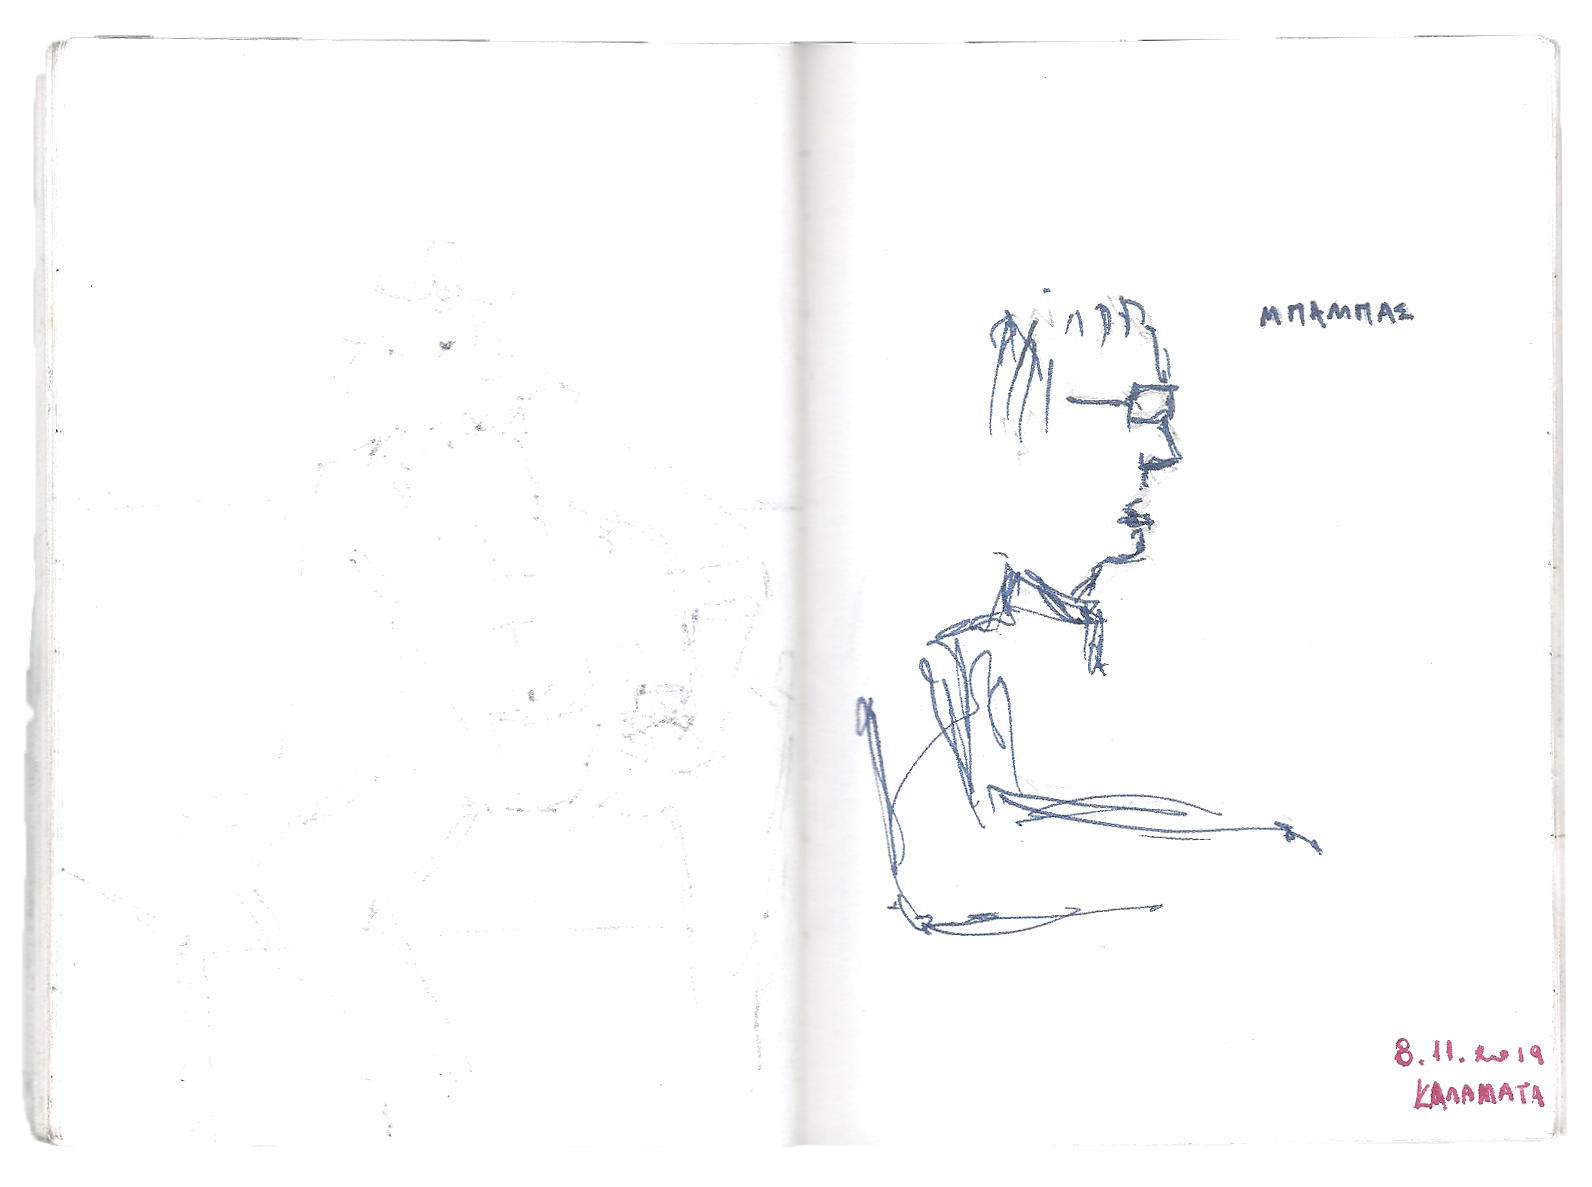 ΜΠΑΜΠΑΣ
8.11.2019
ΚΑΛΑΜΑΤΑ